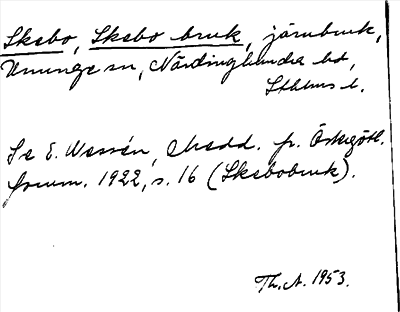 Skebo, Skebo bruk, järnbruk,
Ununge sn, Närdinghundra hd,
Sthlms l.
Se E. Wessén, Medd. fr. Östergötl.
fornm. 1922, s. 16 (Skebobruk).
Th. A. 1953.